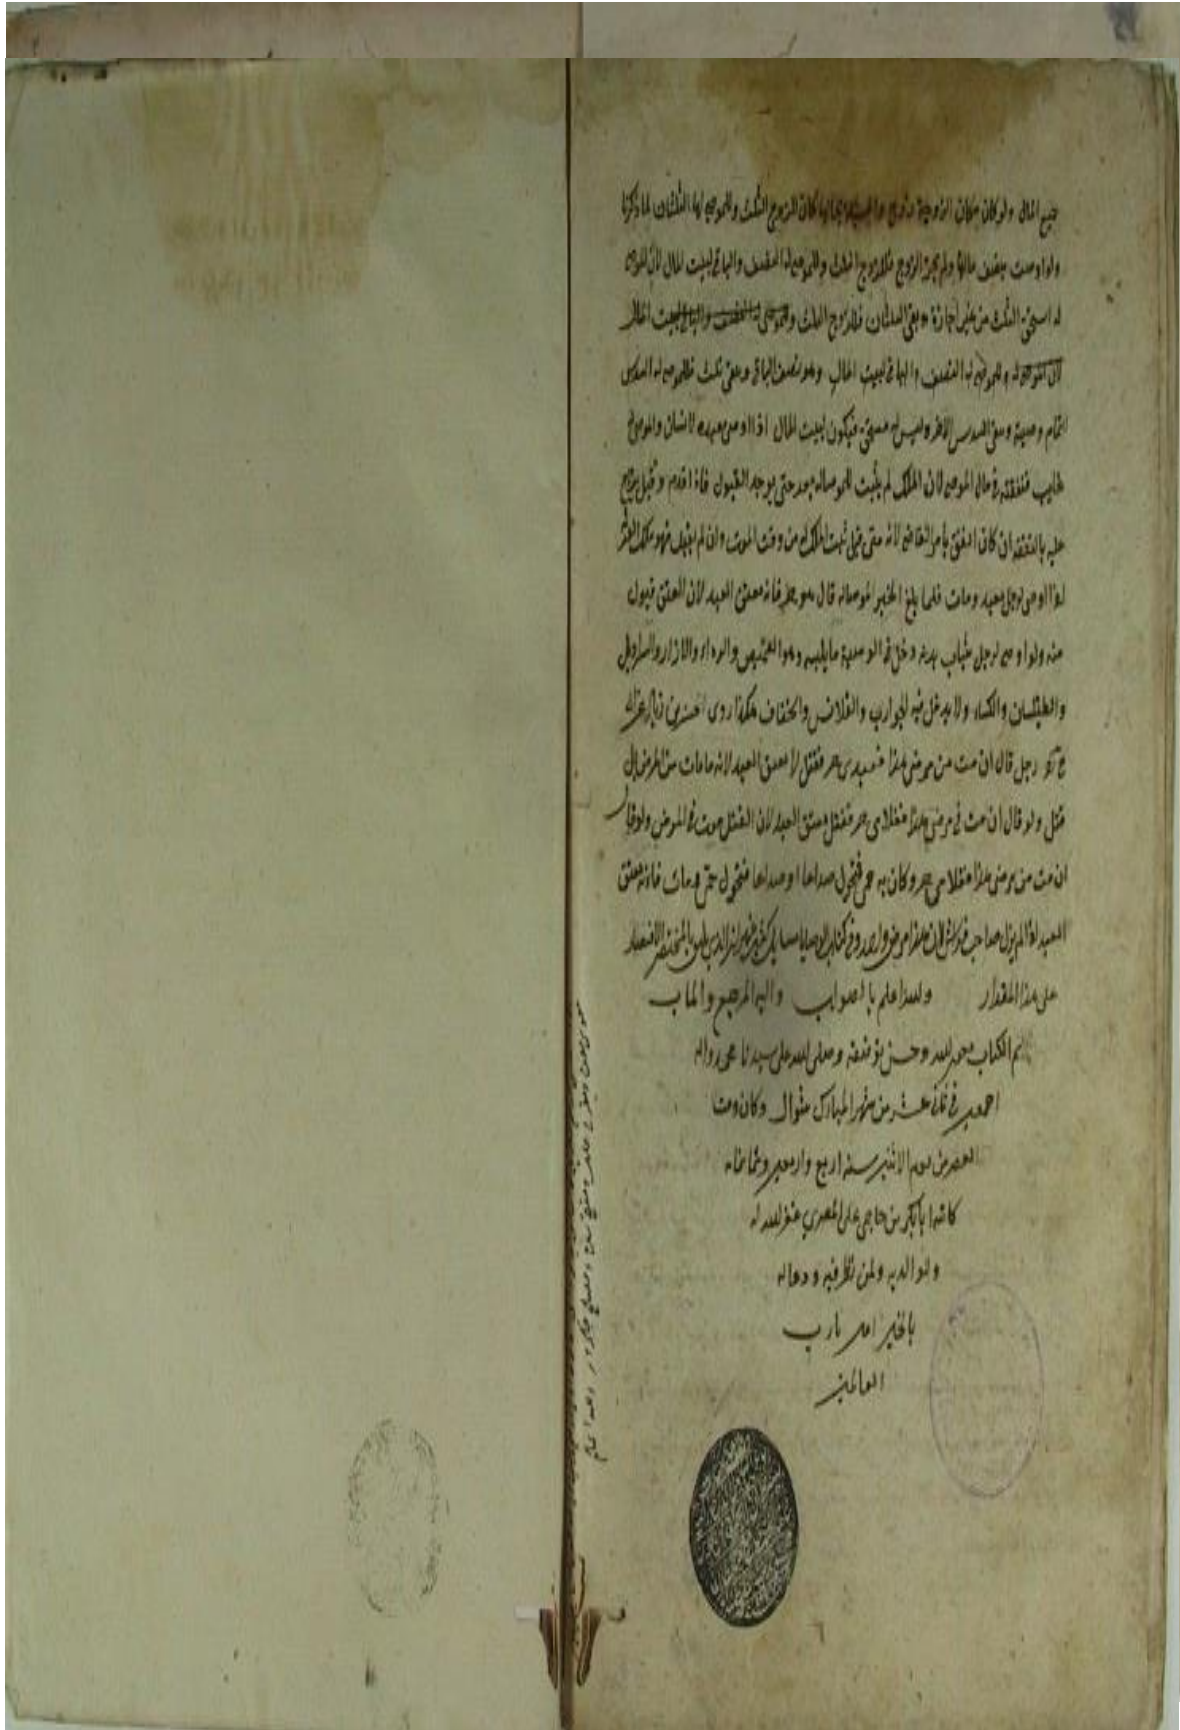 جميع المال ولو كان مكان الزوجة زوج والمسئلة بحالها كان للزوج الثلث وللموصى لها الثلثان لما ذكرنا
ولو اوصت بنصف مالها ولم يجز الزوج فللزوج الثلث وللموصى له النصف والباقي لبيت المال لان الموصى
له استحق الثلث من غير اجازة وبقي الثلثان فللزوج الثلث وللموصى له النصف والباقي لبيت المال
لان الموصى له وللموصى له النصف والباقي لبيت المال وهو نصف الباقي وبقي ثلث فللموصى له السدس
تمام وصيته وبقي السدس الاخر وليس له مستحق فيكون لبيت المال اذا اوصى بعبده لانسان والموصى
غايب فنفقته في مال الموصى لان الملك لم يثبت للموصاله بعد حتى يوجد القبول فاذا قدم وقبل يرجع
عليه بالنفقة ان كان انفق بامر القاضي لانه متى قبل ثبت الملك له من وقت الموت وان لم يقبل فهو ملك
اذا اوصى لرجل بعبد ومات فلما بلغ الخبر الموصاله قال هو حر فانه يعتق العبد لان العتق قبول
منه ولو اوصى لرجل بثياب بدنه دخل في الوصية ما يلبسه وهو القميص والرداء والازار والسراويل
والطيلسان والكساء ولا يدخل فيه الجوارب والقلانس والخفاف هكذا روى الحسن بن زياد عن
رجل قال ان مت من مرضي هذا فعبدي حر فقتل لا يعتق العبد لانه ما مات من المرض بل
قتل ولو قال ان مت في مرضي هذا فغلامي حر فقتل يعتق العبد لان القتل موت في المرض ولو قال
ان مت من مرضي هذا فغلامي حر وكان به حمى فتحول صداعا او صداعا فتحول حمى ومات فانه يعتق
العبد اذا لم يزل صاحب فراش لان هذا مرض واحد وفي كتاب الوصايا مسايل كثيرة الا ان الذي يليق بالمختصر الاقتصار
على هذا المقدار والله اعلم بالصواب واليه المرجع والماب
تم الكتاب بحمد الله وحسن توفيقه وصلى الله على سيدنا محمد واله
اجمعين في ثاني عشر من شهر المبارك شوال وكان وقت
العصر من يوم الاثنين سنه اربع واربعين وثمانمائه
كاتبه ابا بكر بن حاجي على المصري غفر الله له
ولوالديه ولمن نظر فيه ودعا له
بالخير امين يا رب
العالمين